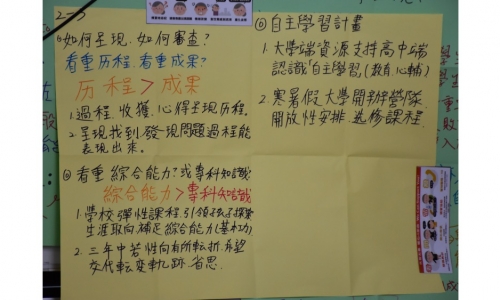 2-3
如何呈現、如何審查?
看重历程、看重成果?
历程 > 成果
1. 過程、收獲、心得呈現历程。
2. 呈現找到、發現問題過程能
表現出來。
看重綜合能力?或專科知識
綜合能力 > 專科知識
1. 學校彈性課程、引領孩子探索
生涯取向、補足綜合能力(基本功)
2. 三年中若性向有所轉折,希望
交代転变軌跡、省思.
自主學習計畫
1. 大學端資源支持高中端
認識「自主學習」(教育、心輔)
2. 寒暑假大學開辦營隊、
開放性安排選修課程.